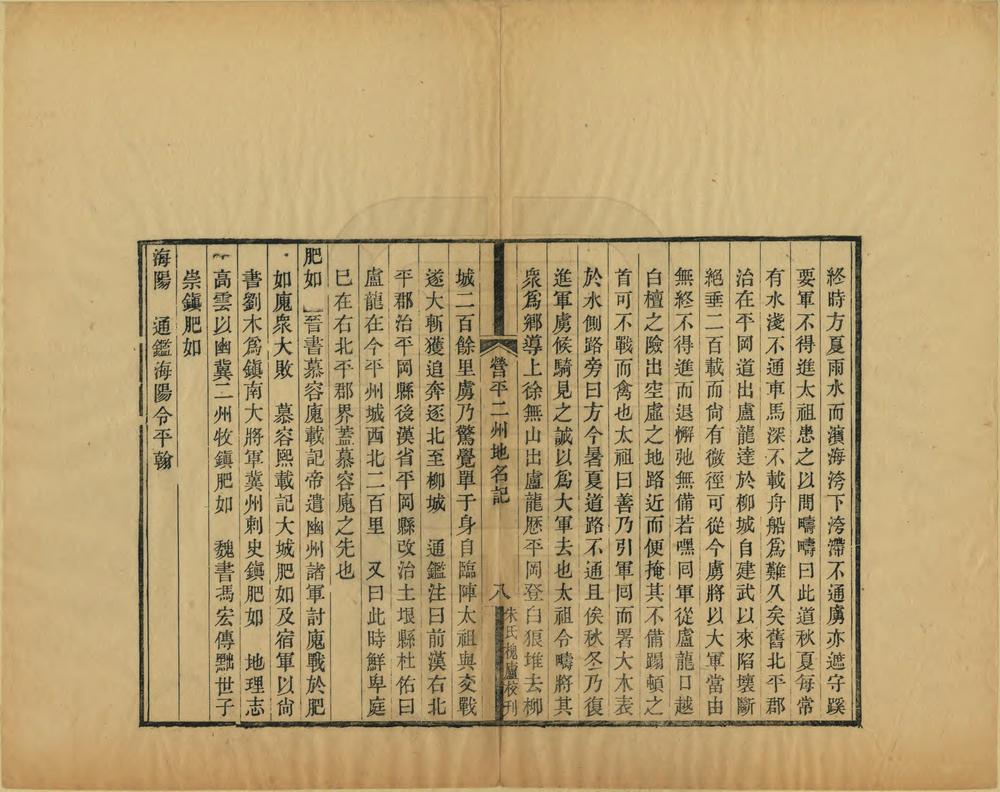 終時方夏雨水而濱海洿下洿滯不通虜亦遮守蹊
要軍不得進太祖患之以問疇疇曰此道秋夏每常
有水淺不通車馬深不載舟船爲難久矣舊北平郡
治在平岡道出盧龍達於柳城自建武以來陷壞斷
絕垂二百載而尙有微徑可從今虜將以大軍當由
無終不得進而退懈弛無備若嘿囘軍從盧龍口越
白檀之險出空虛之地路近而便掩其不備蹋頓之
首可不戰而禽也太祖曰善乃引軍囘而署大木表
於水側路旁曰方今暑夏道路不通且俟秋冬乃復
進軍虜候騎見之誠以爲大軍去也太祖令疇將其
衆爲鄕導上徐無山出盧龍歷平岡登白狼堆去柳
營平二州地名記
八
朱氏槐廬校刊
城二百餘里虜乃驚覺單于身自臨陣太祖與交戰
遂大斬獲追奔逐北至柳城　通鑑注曰前漢右北
平郡治平岡縣後漢省平岡縣改治土垠縣杜佑曰
盧龍在今平州城西北二百里　又曰此時鮮卑庭
已在右北平郡界蓋慕容廆之先也
肥如　晉書慕容廆載記帝遣幽州諸軍討廆戰於肥
如廆衆大敗　慕容熙載記大城肥如及宿軍以尙
書劉木爲鎭南大將軍冀州刺史鎭肥如　地理志
高雲以幽冀二州牧鎭肥如　魏書馮宏傳黜世子
崇鎭肥如
海陽　通鑑海陽令平翰